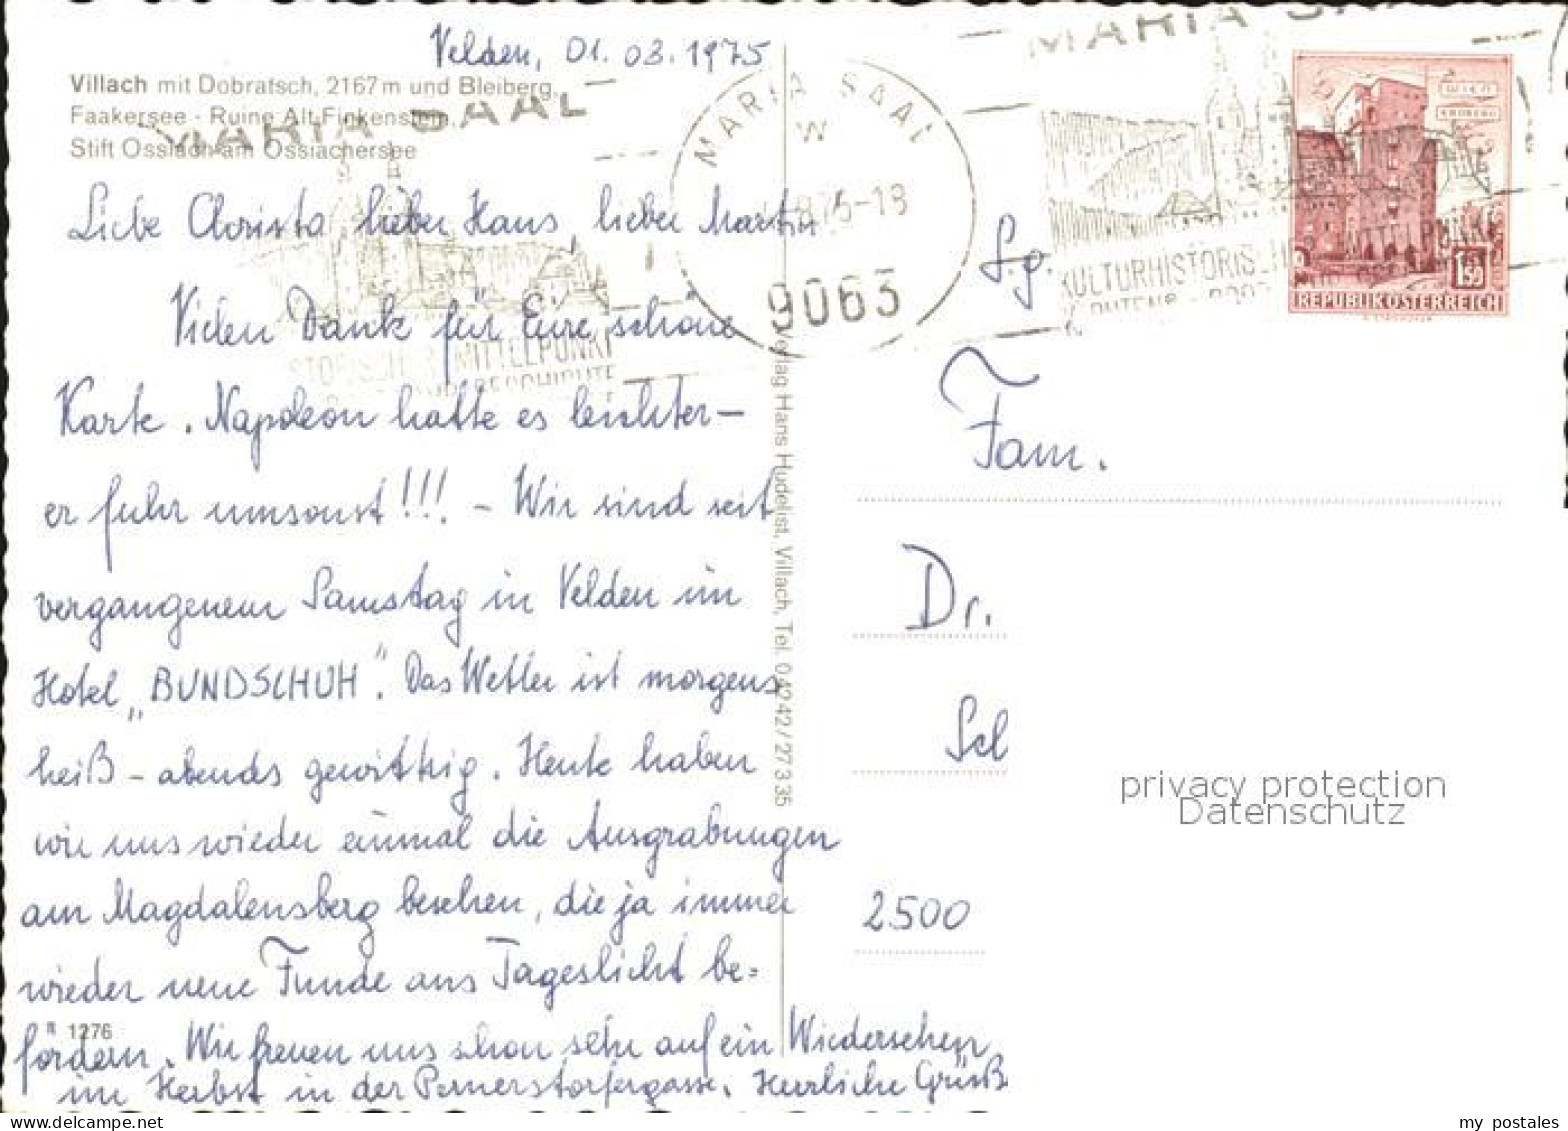 Velden, 01. 03. 1975
Villach mit Dobratsch, 2167 m und Bleiberg,
Faakersee - Ruine Alt Finkenstein,
Stift Ossiach am Ossiachersee
MARIA SAAL
Liebe Christa, lieber Hans, lieber Martin
Vielen Dank für Eure schöne
Karte. Napoleon hatte es leichter –
er fuhr umsonst!!! – Wir sind seit
vergangenem Samstag in Velden im
Hotel „BUNDSCHUH". Das Wetter ist morgens
heiß – abends gewittrig. Heute haben
wir uns wieder einmal die Ausgrabungen
am Magdalensberg besehen, die ja immer
wieder neue Funde ans Tageslicht be=
fördern. Wir freuen uns schon sehr auf ein Wiedersehen
im Herbst in der Pernerstorfergasse. Herzliche Grüß
R 1276
Verlag Hans Hudelist, Villach, Tel. 04242/27335
MARIA SAAL
W
75-18
9063
MARIA
KULTURHISTORISCHER MITTELPUNKT
REPUBLIK ÖSTERREICH
1.50
Sg.
Fam.
Dr.
Sch
2500
privacy protection
Datenschutz
my postales